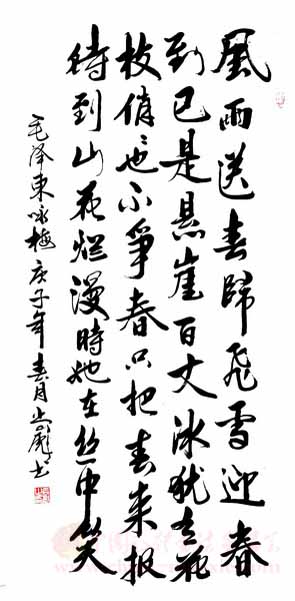 風雨送春歸飛雪迎春
到已是悬崖百丈冰犹有花
枝俏〻也不爭春只把春来报
待到山花烂漫時她在丛中笑
毛泽東咏梅庚子年春月书